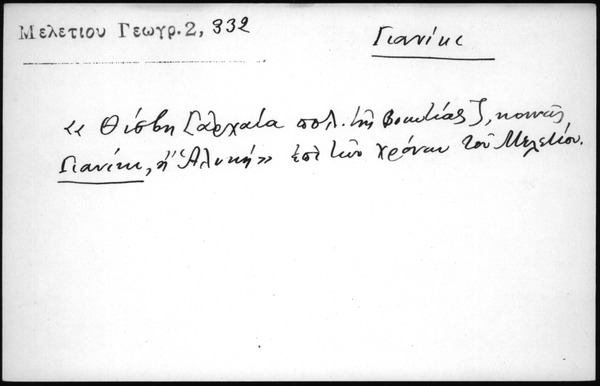 Μελετίου Γεωγρ. 2, 332
Γιανίκι
« Θίσβη [ἀρχαία πόλ. τῆς Βοιωτίας], κοινῶς
Γιανίκι, ἢ Ἁλυκή» ἐπὶ τῶν χρόνων τοῦ Μελετίου.